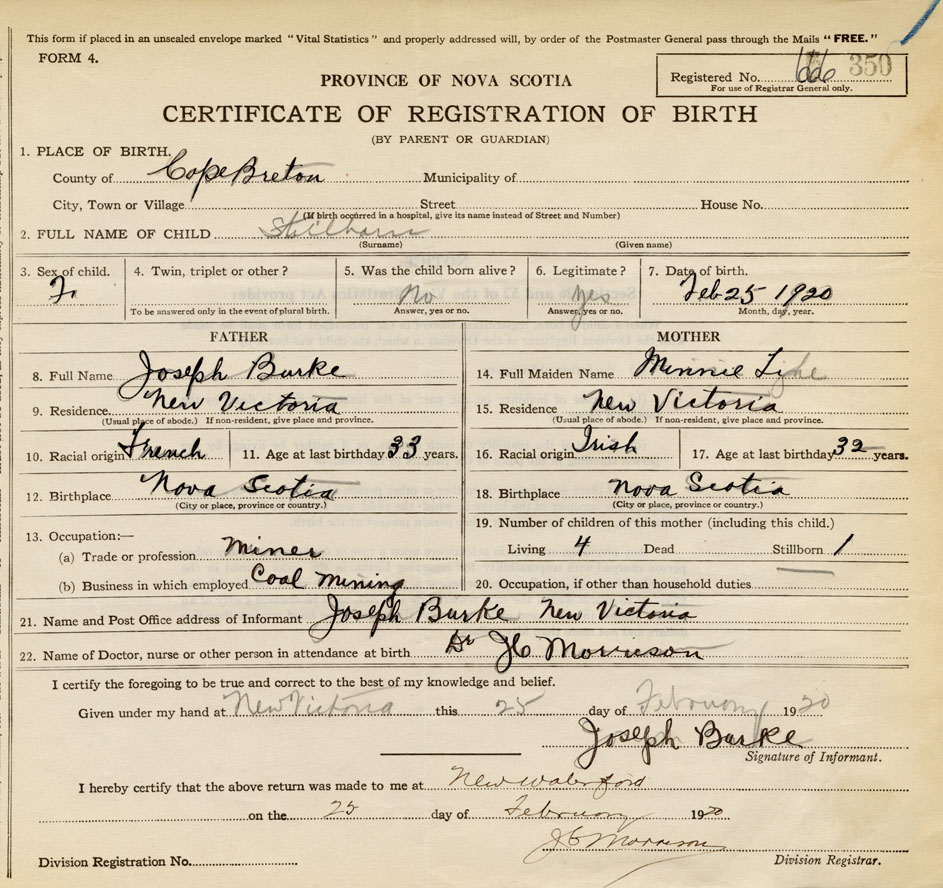 This form if placed in an unsealed envelope marked "Vital Statistics" and properly addressed will, by order of the Postmaster General pass through the Mails "FREE."
FORM 4.
Registered No. 666 350
For use of Registrar General only.
PROVINCE OF NOVA SCOTIA
CERTIFICATE OF REGISTRATION OF BIRTH
(BY PARENT OR GUARDIAN)
1. PLACE OF BIRTH.
County of Cape Breton Municipality of
City, Town or Village Street House No.
(If birth occurred in a hospital, give its name instead of Street and Number)
2. FULL NAME OF CHILD Stillborn
(Surname) (Given name)
3. Sex of child. 4. Twin, triplet or other? 5. Was the child born alive? 6. Legitimate? 7. Date of birth.
F. No Yes Feb 25 1920
To be answered only in the event of plural birth. Answer, yes or no. Answer, yes or no. Month, day, year.
FATHER
8. Full Name Joseph Burke
9. Residence New Victoria
(Usual place of abode.) If non-resident, give place and province.
10. Racial origin French 11. Age at last birthday 33 years.
12. Birthplace Nova Scotia
(City or place, province or country.)
13. Occupation:—
(a) Trade or profession Miner
(b) Business in which employed Coal Mining
MOTHER
14. Full Maiden Name Minnie
15. Residence New Victoria
(Usual place of abode.) If non-resident, give place and province.
16. Racial origin Irish 17. Age at last birthday 32 years.
18. Birthplace Nova Scotia
(City or place, province or country.)
19. Number of children of this mother (including this child.)
Living 4 Dead Stillborn 1
20. Occupation, if other than household duties
21. Name and Post Office address of Informant Joseph Burke New Victoria
22. Name of Doctor, nurse or other person in attendance at birth Dr Morrison
I certify the foregoing to be true and correct to the best of my knowledge and belief.
Given under my hand at New Victoria this 25 day of February 1920
Joseph Burke
Signature of Informant.
I hereby certify that the above return was made to me at New Waterford
on the 25 day of February 1920
Morrison
Division Registration No. Division Registrar.